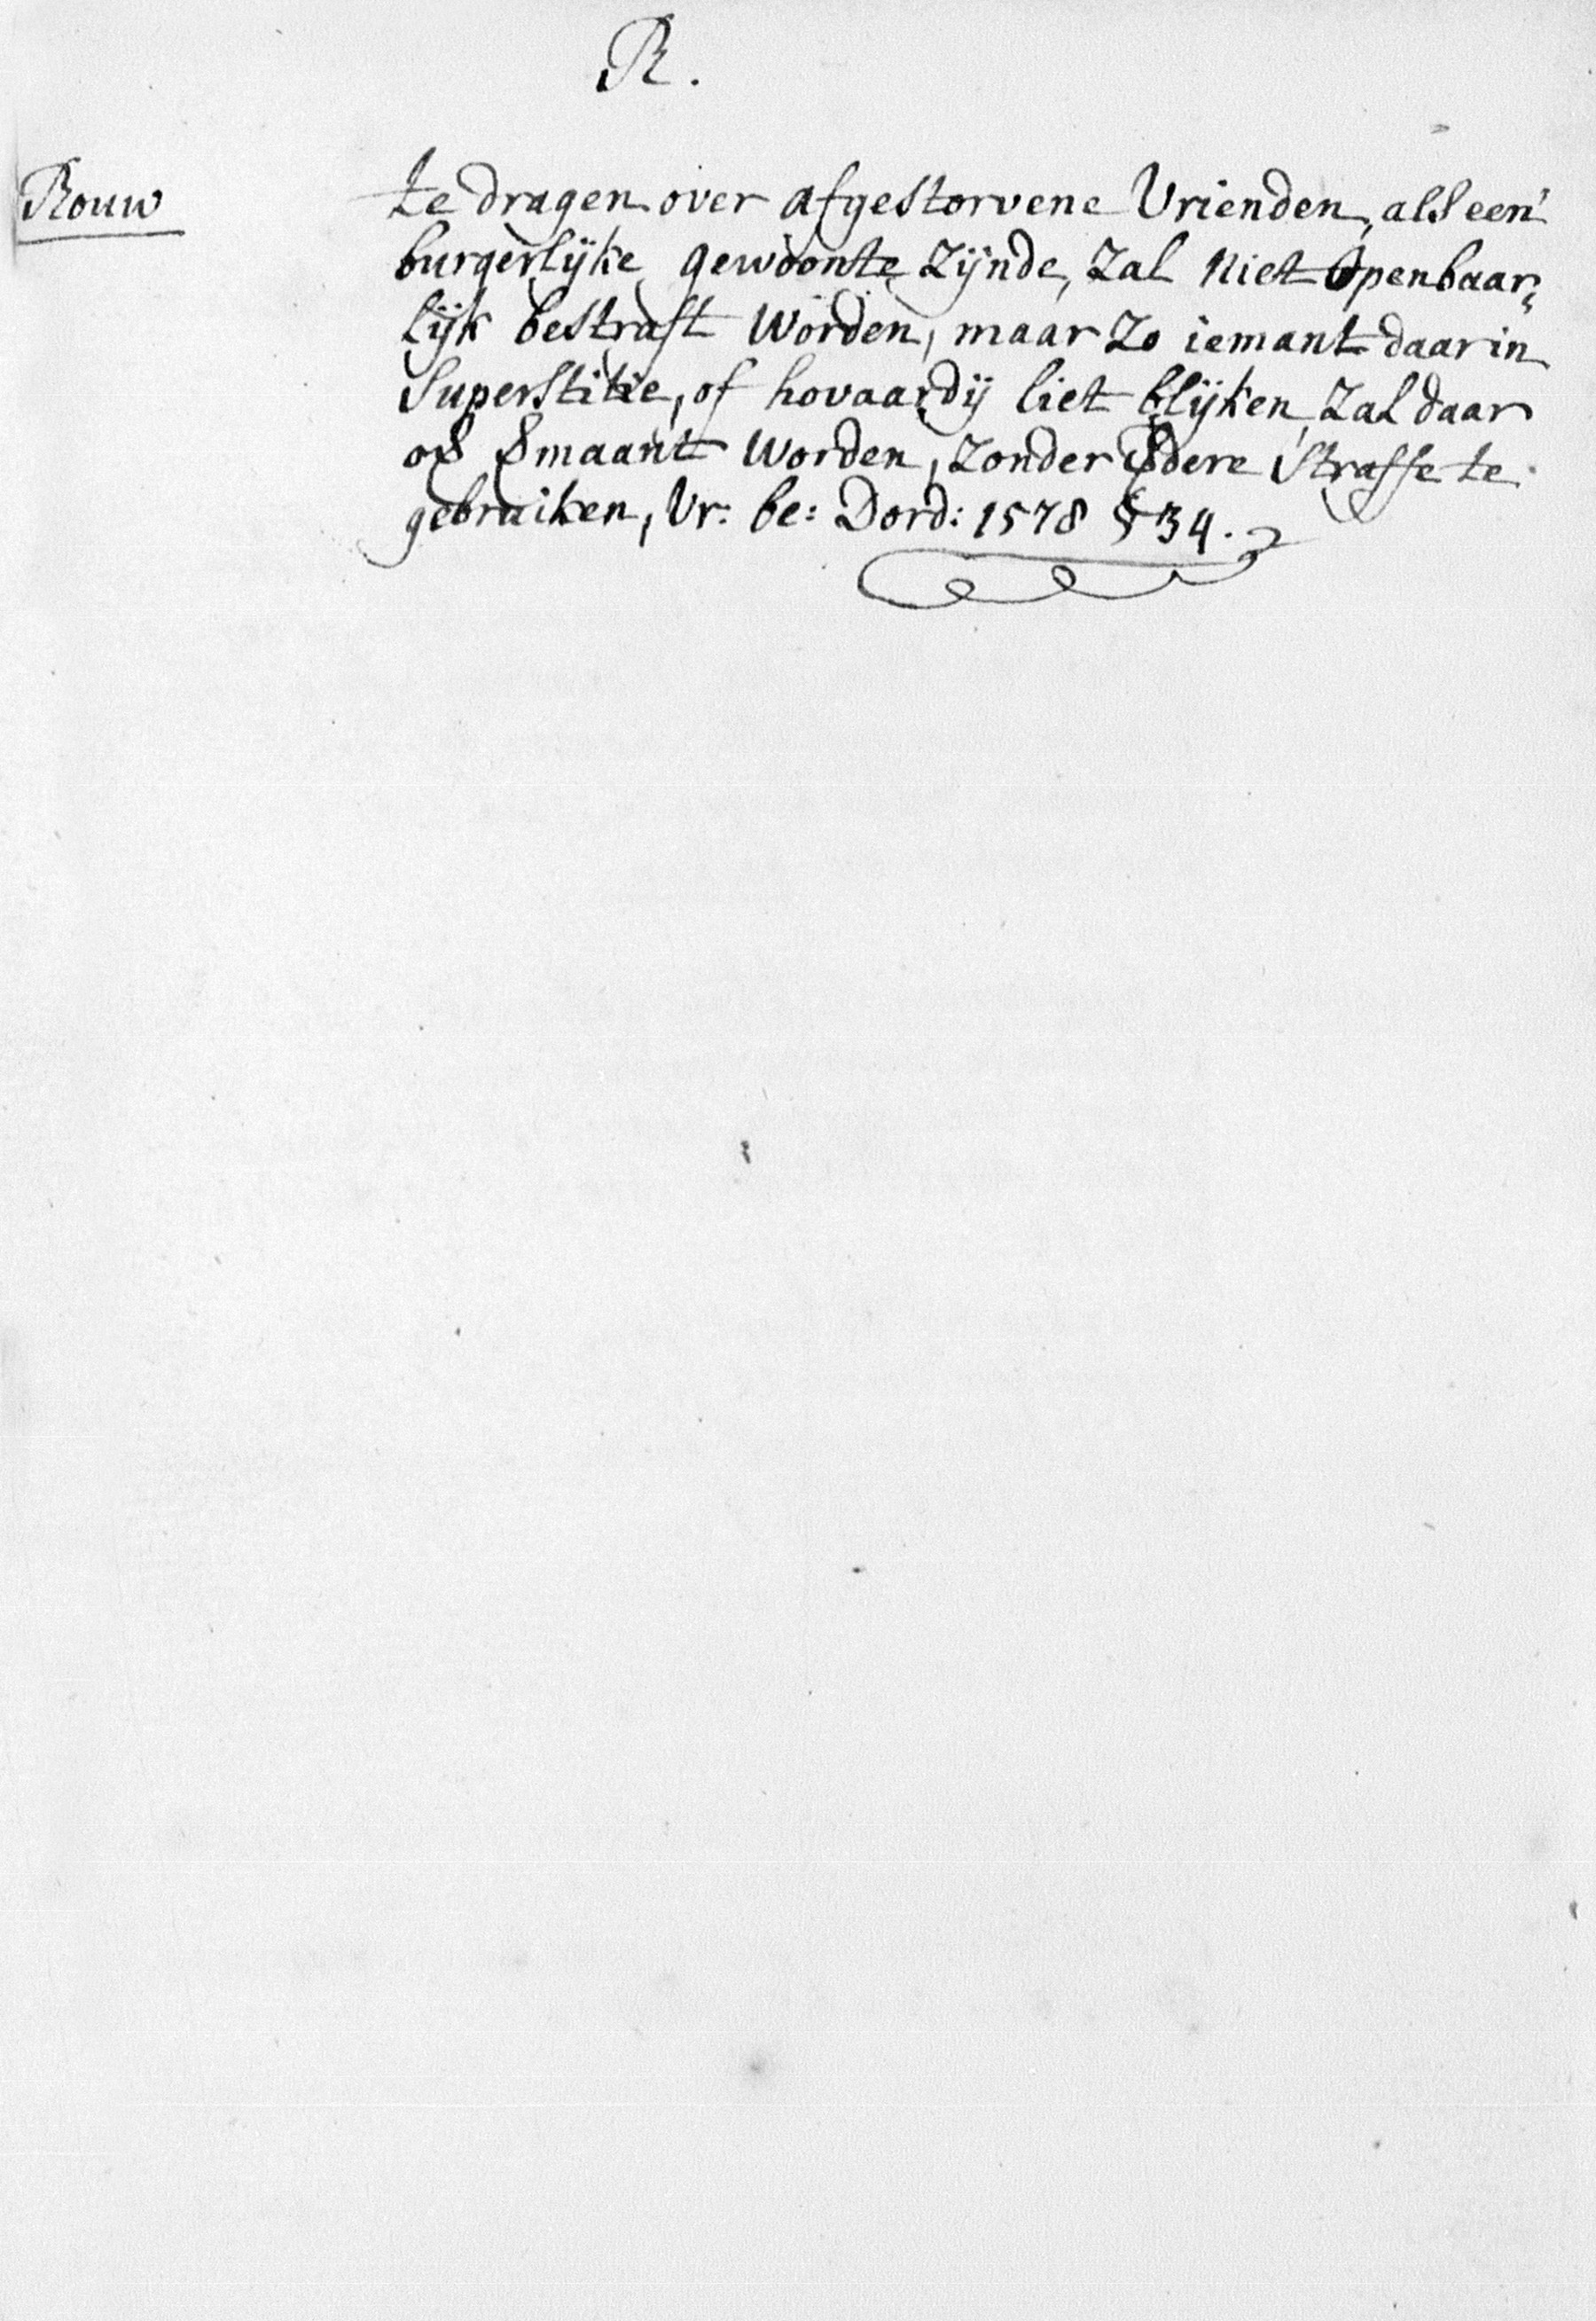 R.
Rouw te dragen over afgestorvene Vrienden, als een
burgerlijke gewoonte zijnde, zal niet openbaar„
lijk bestraft worden, maar zo iemant daar in
Superstitie, of hovaardij liet blijken, zal daar
maant worden, zonder dere straffe te
gebruiken, Vr: be: Dord: 1578 § 34.